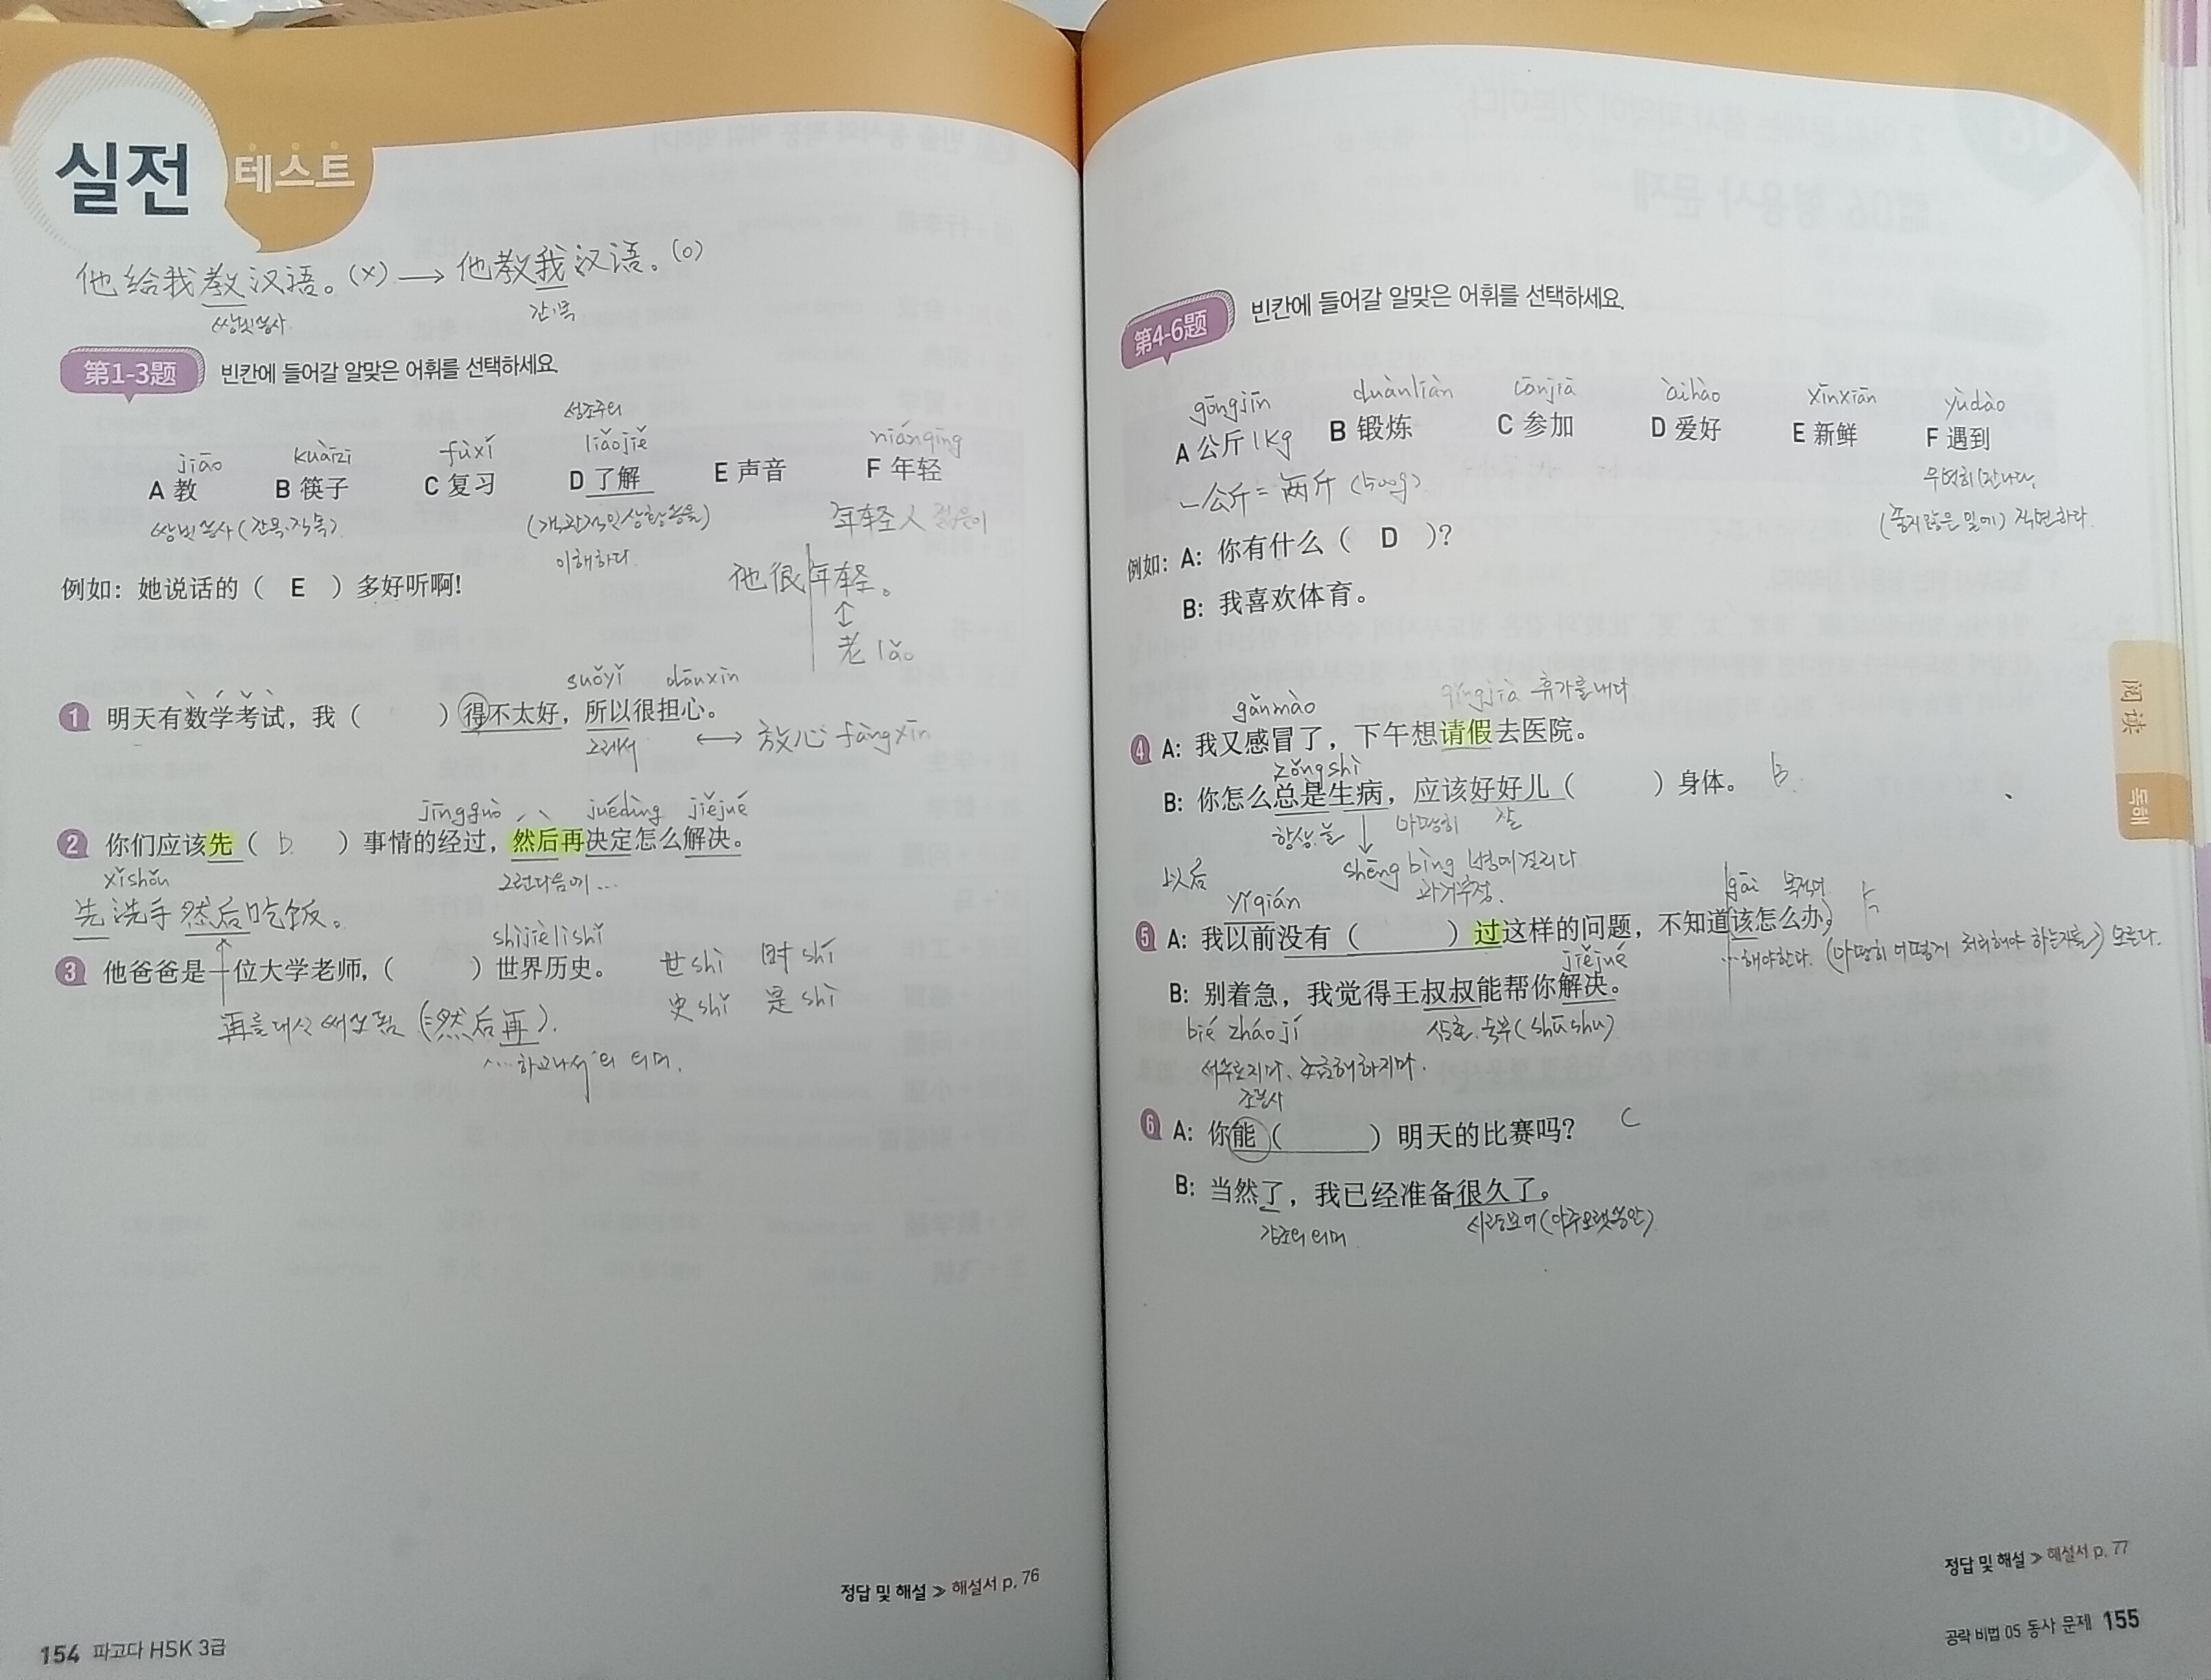 실전 테스트
他给我教汉语。(X) → 他教我汉语。(O)
쌍빈동사 간·목
第1-3题 빈칸에 들어갈 알맞은 어휘를 선택하세요.
성조주의
jiāo kuàizi fùxí liǎojiě niánqīng
A 教 B 筷子 C 复习 D 了解 E 声音 F 年轻
쌍빈동사(간목·직목) (객관적인 상황 등을) 年轻人 젊은이
이해하다.
例如: 她说话的 ( E ) 多好听啊!
他很年轻。
↕
老 lǎo
suǒyǐ dānxīn
1 明天有数学考试, 我 ( ) 得不太好, 所以很担心。
그래서 ↔ 放心 fàngxīn
jīngguò juédìng jiějué
2 你们应该先 ( D ) 事情的经过, 然后再决定怎么解决。
xǐshǒu 그런다음에...
先洗手 然后吃饭。
shìjièlìshǐ
3 他爸爸是一位大学老师, ( ) 世界历史。
世 shì 时 shí
史 shǐ 是 shì
(=然后再).
정답 및 해설 ≫ 해설서 p. 76
154 파고다 HSK 3급
第4-6题 빈칸에 들어갈 알맞은 어휘를 선택하세요.
gōngjīn duànliàn cānjiā àihào xīnxiān yùdào
A 公斤 1kg B 锻炼 C 参加 D 爱好 E 新鲜 F 遇到
一公斤 = 两斤 (500g) 우연히 만나다,
(좋지 않은 일에) 직면하다.
例如: A: 你有什么 ( D )?
B: 我喜欢体育。
gǎnmào qǐngjià 휴가를 내다
4 A: 我又感冒了, 下午想请假去医院。
zǒngshì
B: 你怎么总是生病, 应该好好儿 ( ) 身体。 B.
항상, 늘 마땅히 잘
shēng bìng 병에 걸리다
以后 과거추정.
yǐqián gāi 목적어
5 A: 我以前没有 ( ) 过这样的问题, 不知道该怎么办。 F
jiějué ...해야한다. (마땅히 어떻게 처리해야 하는가를) 모른다.
B: 别着急, 我觉得王叔叔能帮你解决。
bié zháojí 삼촌. 숙부 (shūshu)
서두르지마, 조급해하지마.
조동사
6 A: 你能 ( ) 明天的比赛吗? C
B: 当然了, 我已经准备很久了。
강조의 의미 시량보어 (아주오랫동안)
阅读 독해
정답 및 해설 ≫ 해설서 p. 77
공략 비법 05 동사 문제 155